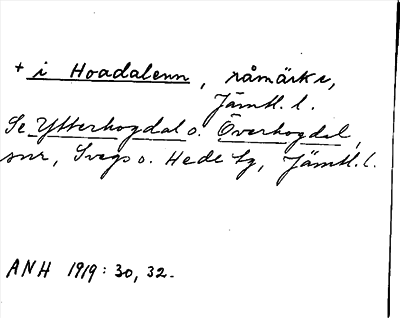 + i Hoadalenn, råmärke,
Jämtl. l.
Se Ytterhogdal o. Överhogdal,
snr, Svegs o. Hede tg, Jämtl. l.
ANH 1919: 30, 32.